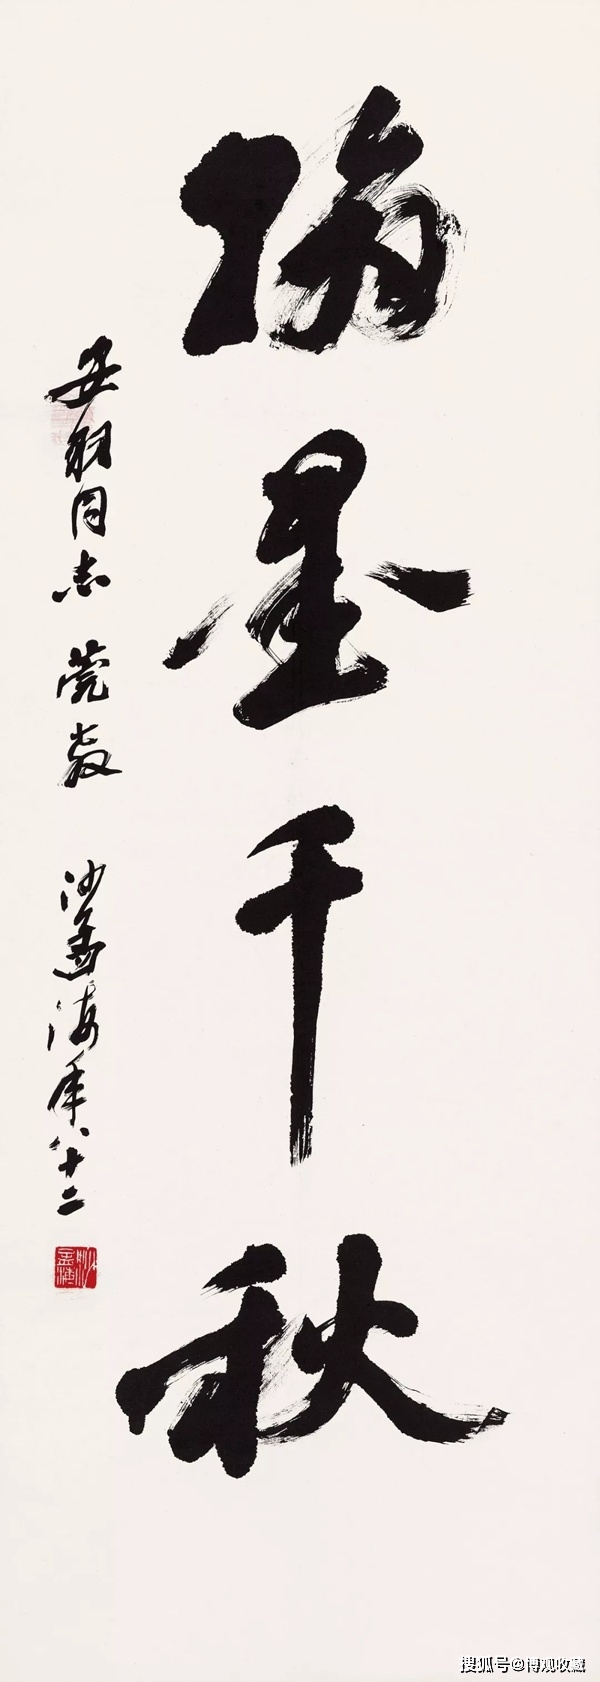 墨千秋
同志 莞教 沙孟海年八十二
沙孟海
搜狐号@博观收藏